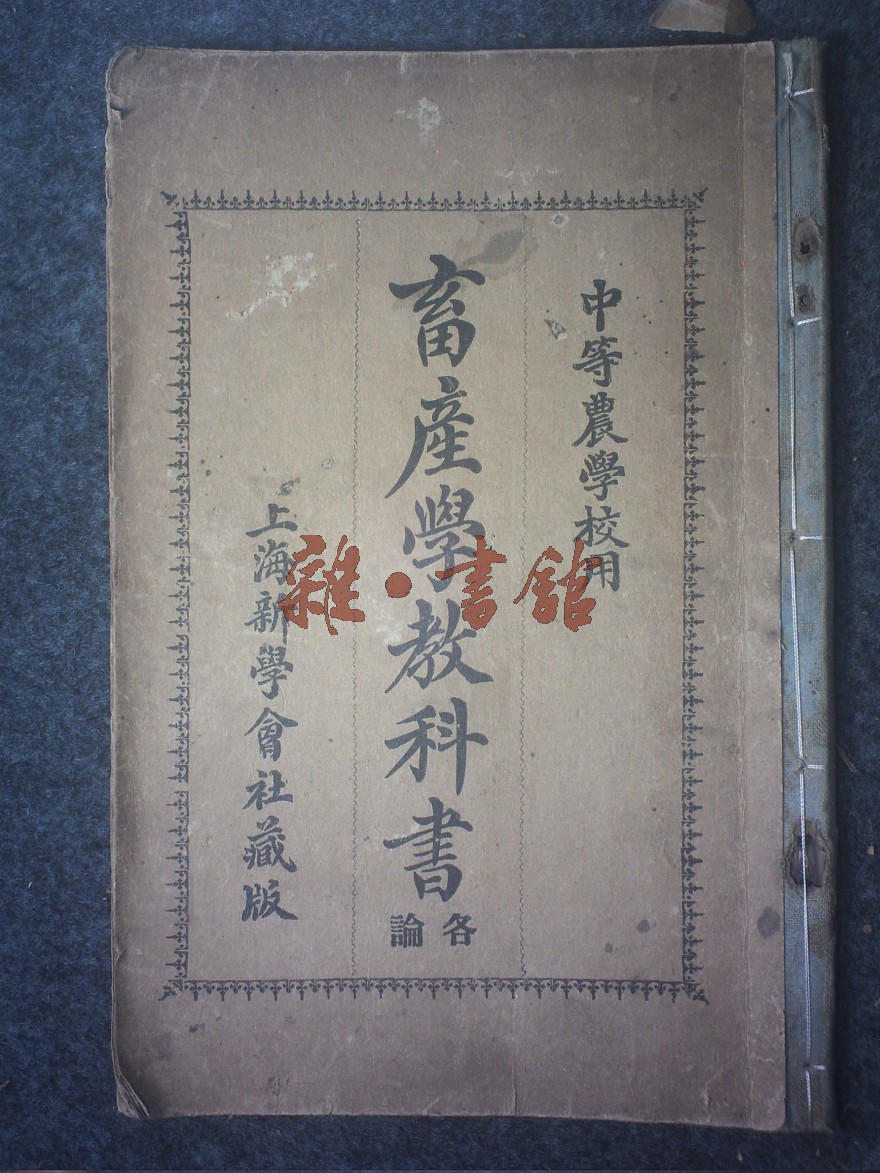 中等農學校用
畜產學教科書
各論
上海新學會社藏版
雜·書館